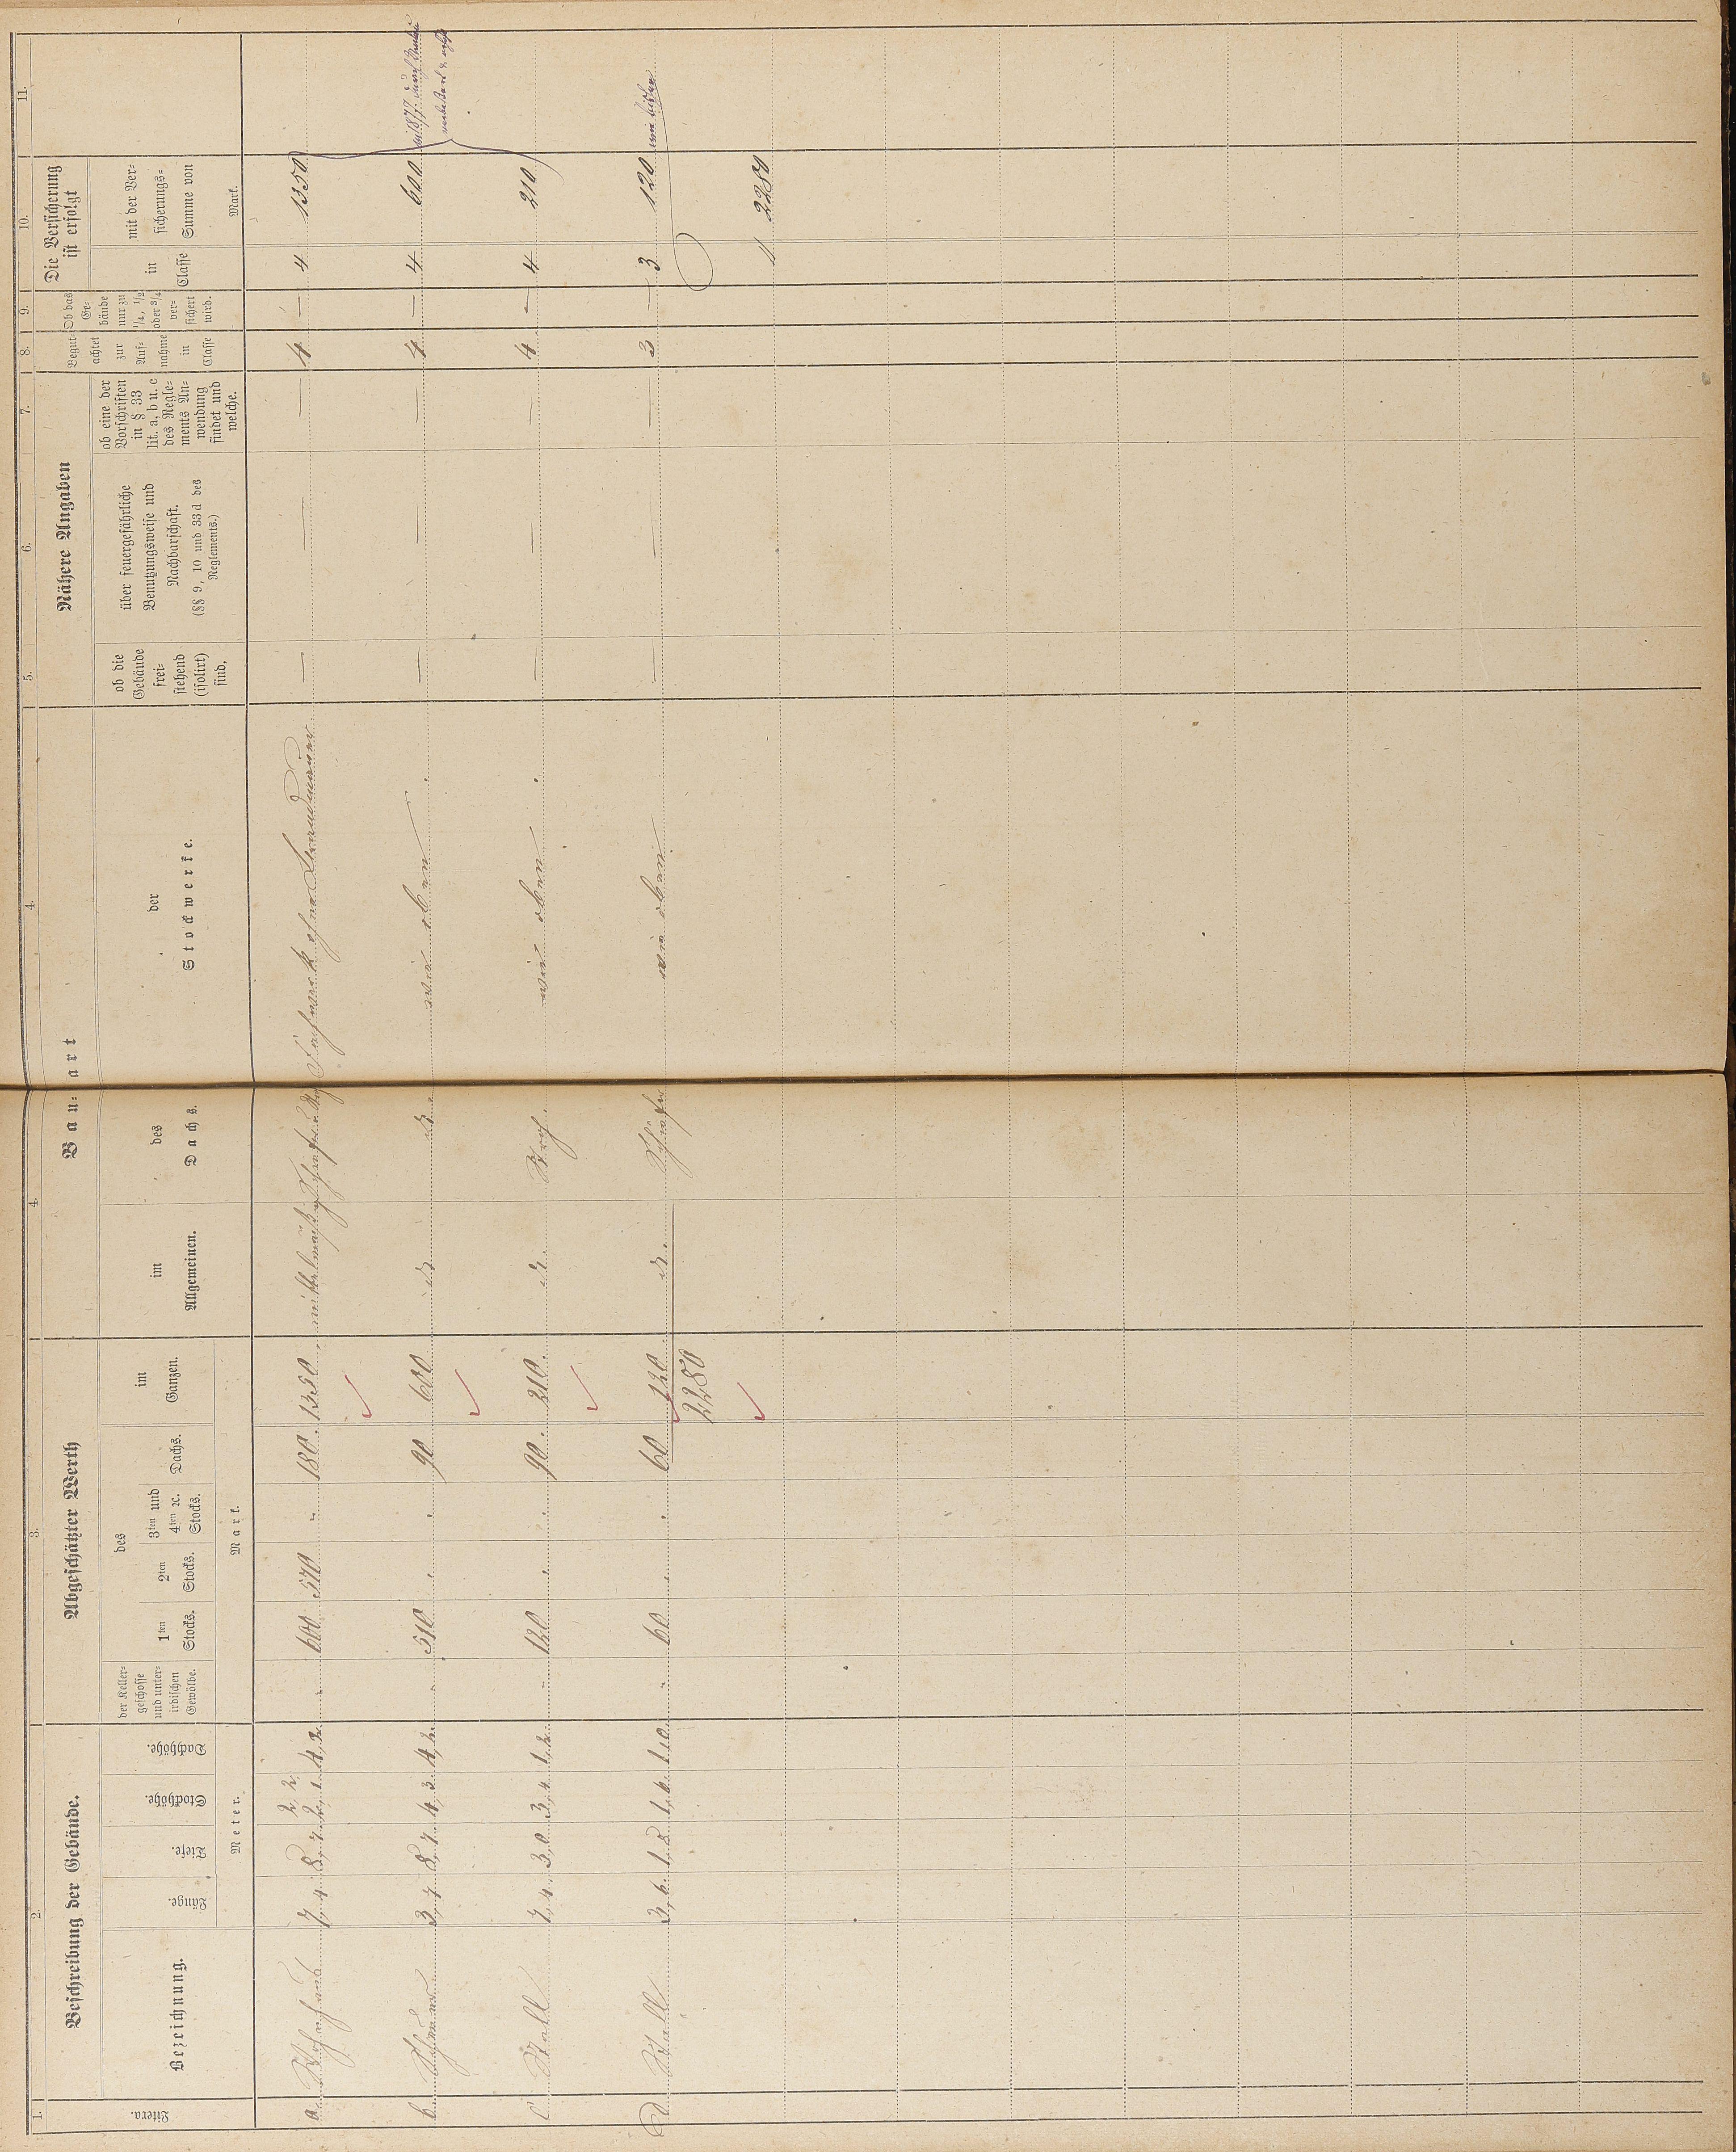 1. 2. 3. 4. 4. 5. 6. 7. 8. 9. 10. 11.
Litera.
Beschreibung der Gebäude.
Bezeichnung.
Länge. Tiefe. Stockhöhe. Dachhöhe.
Meter.
Abgeschätzter Werth
der Keller-
geschosse
und unter-
irdischen
Gewölbe.
des
1ten
Stocks.
2ten
Stocks.
3ten und
4ten ꝛc.
Stocks.
Dachs.
im
Ganzen.
Mark.
Bau-art
im
Allgemeinen.
des
Dachs.
der
Stockwerke.
Nähere Angaben
ob die
Gebäude
frei-
stehend
(isolirt)
sind.
über feuergefährliche
Benutzungsweise und
Nachbarschaft.
(§§ 9, 10 und 33 d des
Reglements.)
ob eine der
Vorschriften
in § 33
lit. a, b u. c
des Regle-
ments An-
wendung
findet und
welche.
Begut-
achtet
zur
Auf-
nahme
in
Classe
Ob das
Ge-
bäude
nur zu
1/4, 1/2
oder 3/4
ver-
sichert
wird.
Die Versicherung
ist erfolgt
in
Classe
mit der Ver-
sicherungs-
Summe von
Mark.
2,2
a. Wohnhaus 7,4 8,7 2,1 4,2 " 600 570 " 180. 1350. mittelmäßig Fachwerk ohne Brandmauer — — — 4 — 4 1350
b. Scheuer 3,7 8,7 4,3 4,2 " 510 . . 90 600 do. do. wie oben . — — — 4 — 4 600
c Stall 7,4 3,0 3,4 1,2 " 120 . . 90. 210. do. Stroh. wie oben . — — — 4 — 4 210
d Stall 3,6 1,8 1,6 1,0 " 60 . . 60 120. do. Schiefer wie oben — — — 3 — 3 120 wie bisher
2280 // 2280